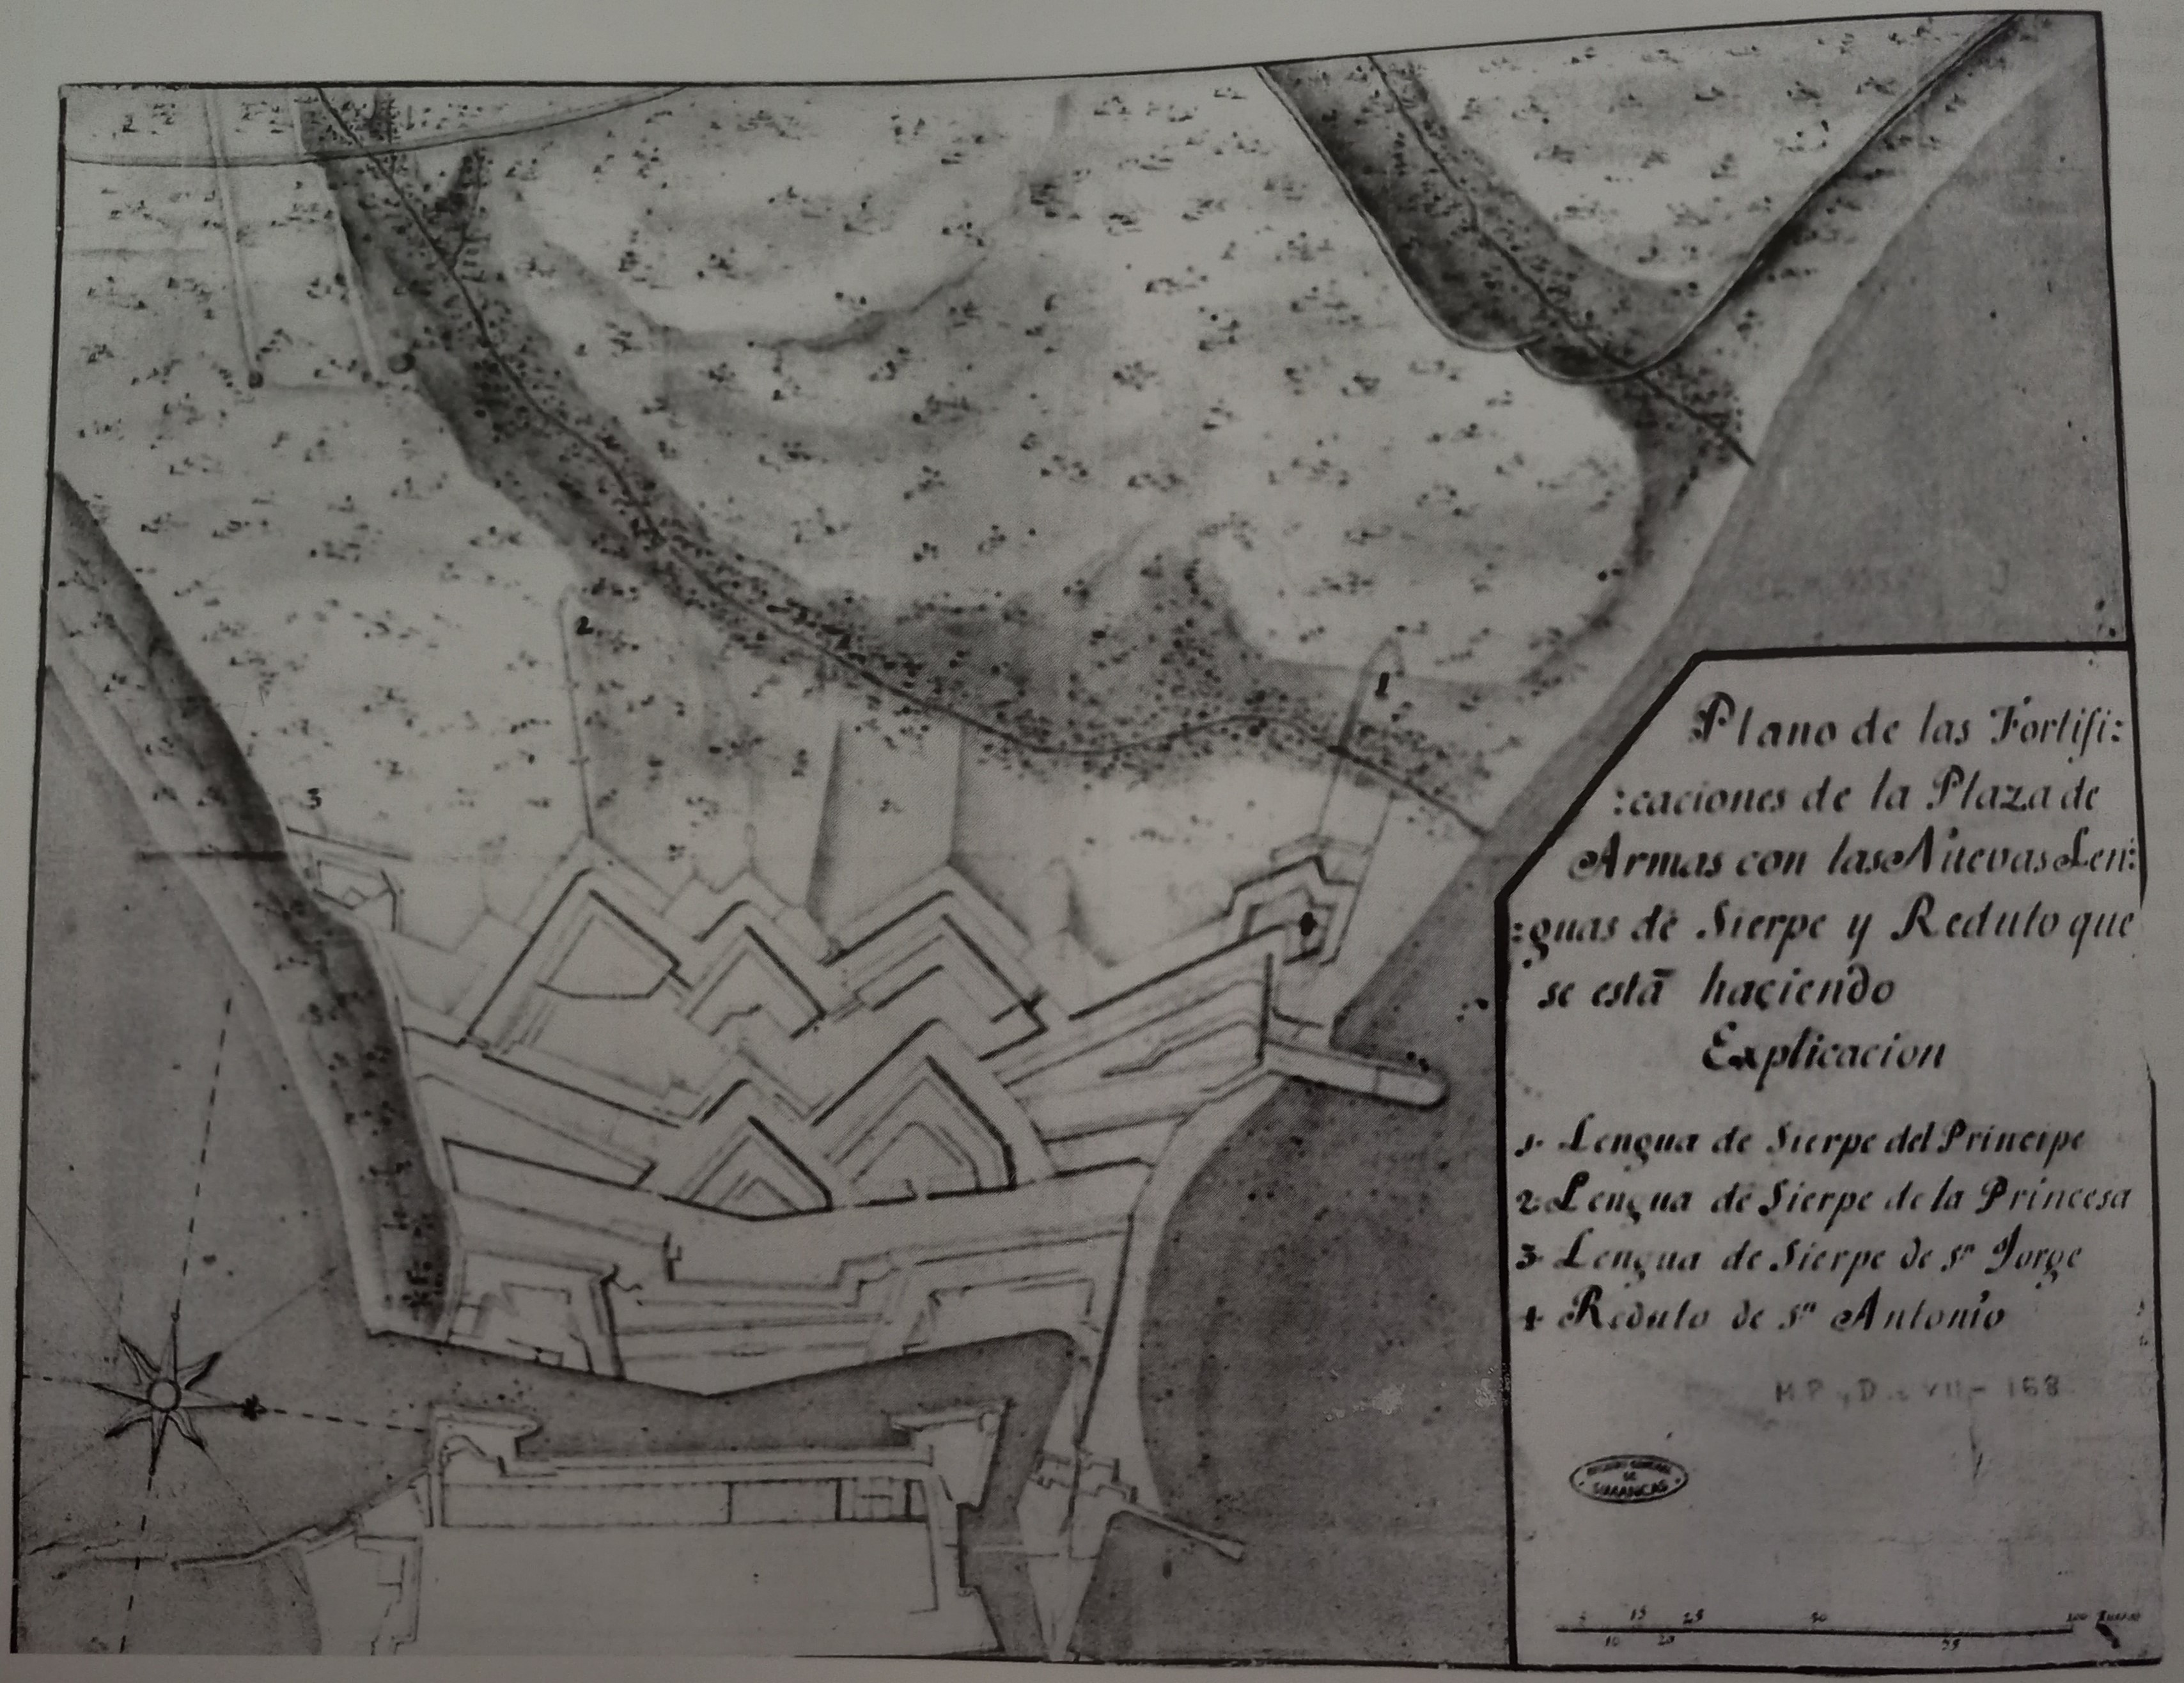 2
1
3
4
Plano de las Fortifi:
:caciones de la Plaza de
Armas con las Nuevas Len:
:guas de Sierpe y Reduto que
se está haciendo
Explicacion
1- Lengua de Sierpe del Principe
2- Lengua de Sierpe de la Princesa
3- Lengua de Sierpe de Sn Jorge
4 Reduto de Sn Antonio
M.P. y D. VII- 168
ARCHIVO GENERAL
DE
SIMANCAS
5 15 25 50 100
10 20 75